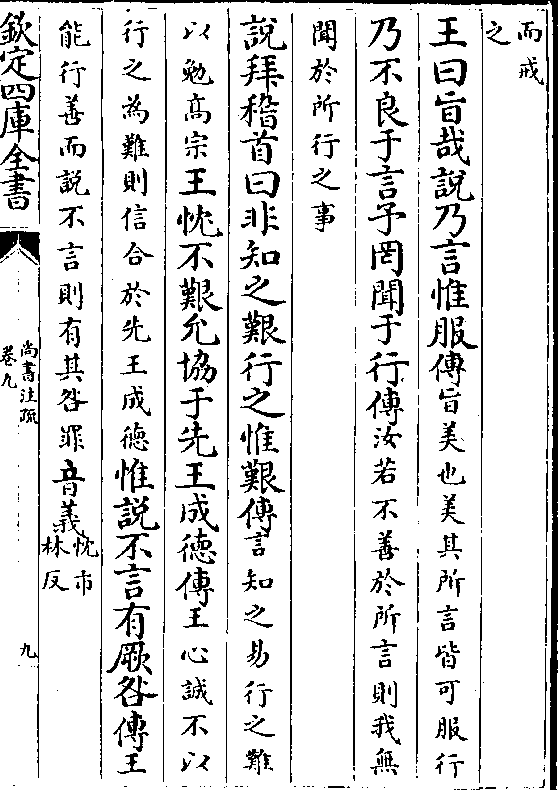 而戒
之
王曰旨哉說乃言惟服傳旨美也美其所言皆可服行
乃不良于言予罔聞于行傳汝若不善於所言則我無
聞於所行之事
說拜稽首曰非知之艱行之惟艱傳言知之易行之難
以勉高宗王忱不艱允協于先王成德傳王心誠不以
行之為難則信合於先王成德惟說不言有厥咎傳王
能行善而說不言則有其咎罪音義忱市
林反
欽定四庫全書
尚書注疏
卷九
九